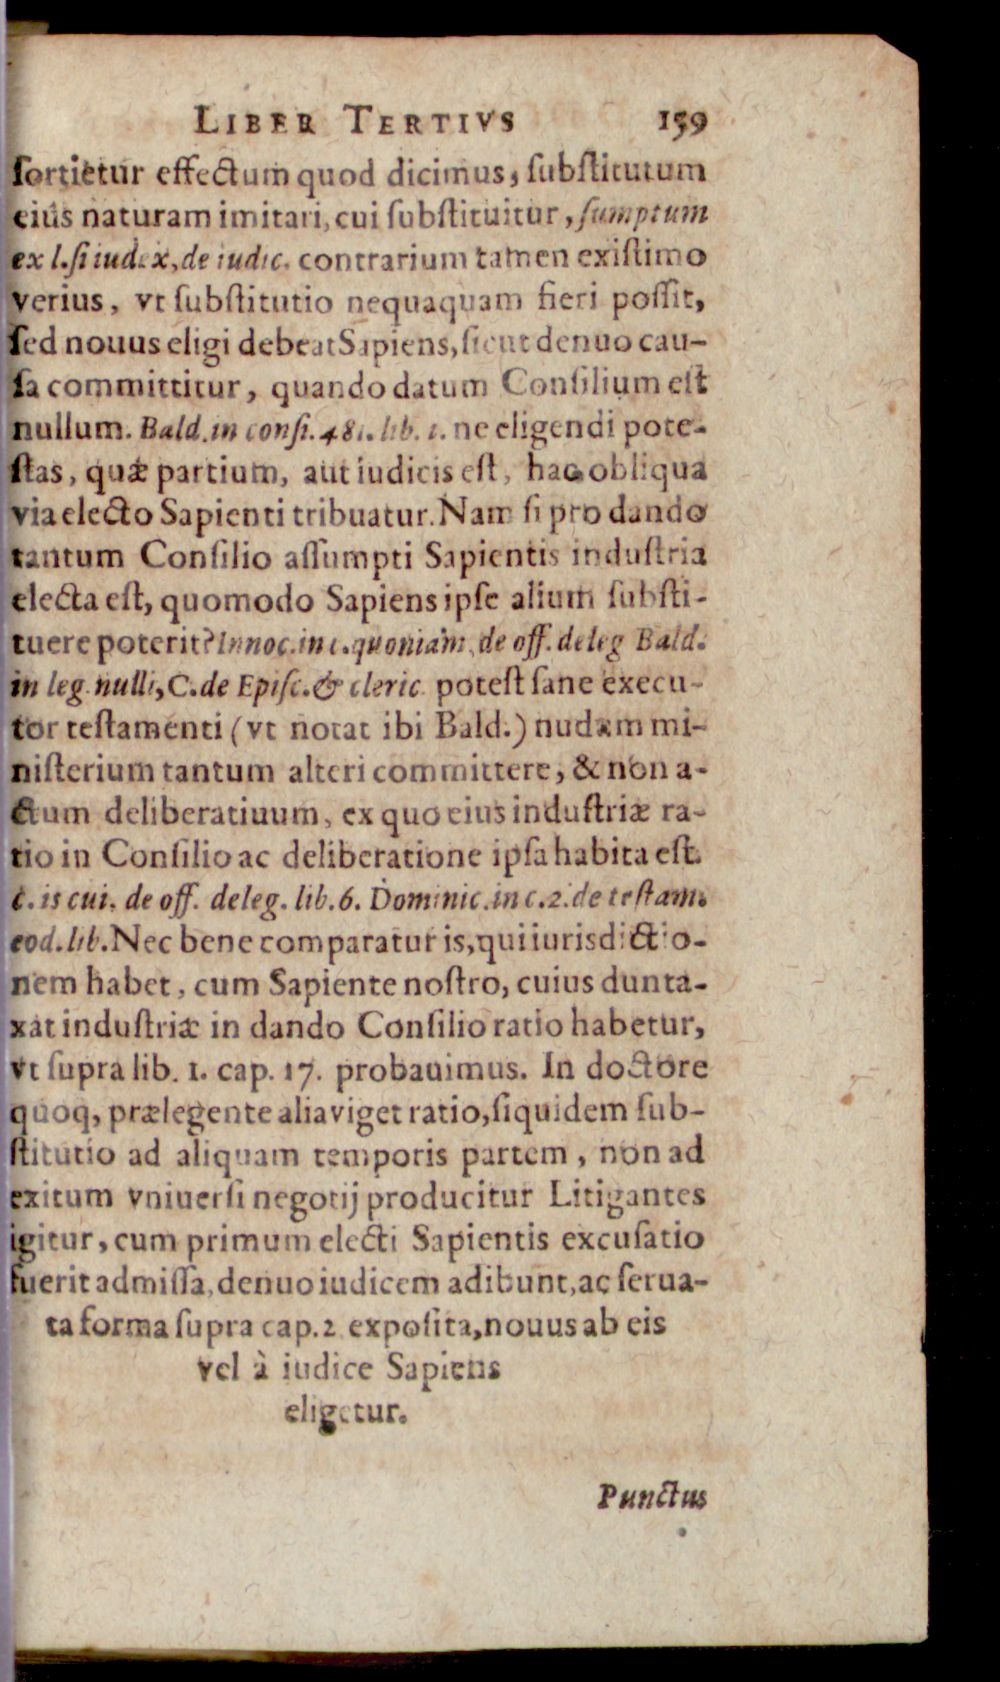 LIBER TERTIVS 159
ſortietur effectum quod dicimus, ſubſtitutum
eius naturam imitari, cui ſubſtituitur, ſumptum
ex l. ſi iudex, de iudic. contrarium tamen exiſtimo
verius, vt ſubſtitutio nequaquam fieri poſſit,
ſed nouus eligi debeat Sapiens, ſicut denuo cau-
ſa committitur, quando datum Conſilium eſt
nullum. Bald. in conſi. 481. lib. 1. ne eligendi pote-
ſtas, quæ partium, aut iudicis eſt, hac obliqua
via electo Sapienti tribuatur. Nam ſi pro dando
tantum Conſilio aſſumpti Sapientis induſtria
electa eſt, quomodo Sapiens ipſe alium ſubſti-
tuere poterit? Innoc. in c. quoniam, de off. deleg Bald.
in leg. nulli, C. de Epiſc. & cleric. poteſt ſane execu-
tor teſtamenti (vt notat ibi Bald.) nudam mi-
niſterium tantum alteri committere, & non a-
ctum deliberatiuum, ex quo eius induſtriæ ra-
tio in Conſilio ac deliberatione ipſa habita eſt.
c. is cui. de off. deleg. lib. 6. Dominic. in c. 2. de teſtam.
eod. lib. Nec bene comparatur is, qui iurisdictio-
nem habet, cum Sapiente noſtro, cuius dunta-
xat induſtriæ in dando Conſilio ratio habetur,
vt ſupra lib. 1. cap. 17. probauimus. In doctore
quoq, prælegente alia viget ratio, ſiquidem ſub-
ſtitutio ad aliquam temporis partem, non ad
exitum vniuerſi negotij producitur Litigantes
igitur, cum primum electi Sapientis excuſatio
fuerit admiſſa, denuo iudicem adibunt, ac ſerua-
ta forma ſupra cap. 2 expoſita, nouus ab eis
vel à iudice Sapiens
eligetur.
Punctus